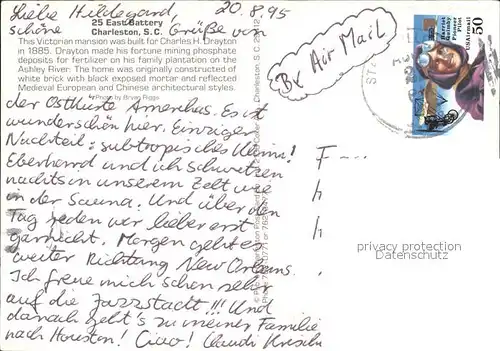 Liebe Hildegard, 20.8.95
schöne Grüße von
25 East Battery
Charleston, S.C.
This Victorian mansion was built for Charles H. Drayton
in 1885. Drayton made his fortune mining phosphate
deposits for fertilizer on his family plantation on the
Ashley River. The home was originally constructed of
white brick with black exposed mortar and reflected
Medieval European and Chinese architectural styles.
Photo by Bryan Riggs
der Ostküste Amerikas. Es ist
wunderschön hier. Einziger
Nachteil: subtropisches Klima!
Eberhard und ich schwitzen
nachts in unserem Zelt wie
in der Sauna. Und über den
Tag reden wir lieber erst
garnicht. Morgen geht es
weiter Richtung New Orleans.
Ich freue mich schon sehr
auf die Jazzstadt!!! Und
danach geht's zu meiner Familie
nach Houston! Ciao! Claudi
By Air Mail
Harriet
Quimby
Pioneer
Pilot
USAirmail
50
F
h
h
privacy protection
ansichtskarten-center.de